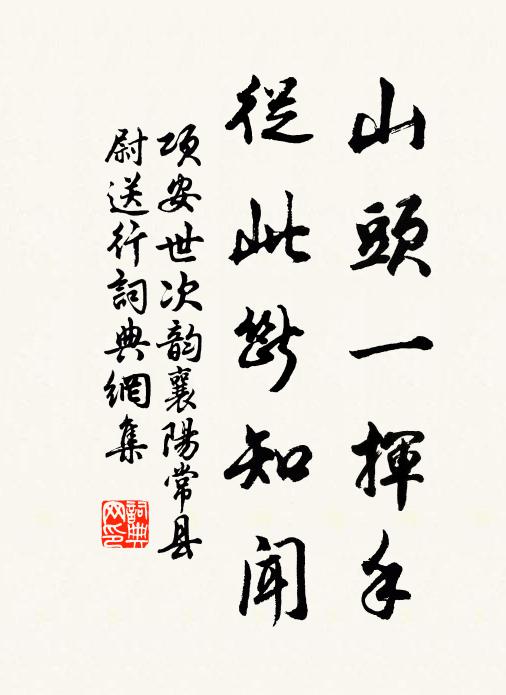 山頭一揮手
從此斷知聞
項安世次韵襄陽常县
尉送行詞典網集
詞典
网印